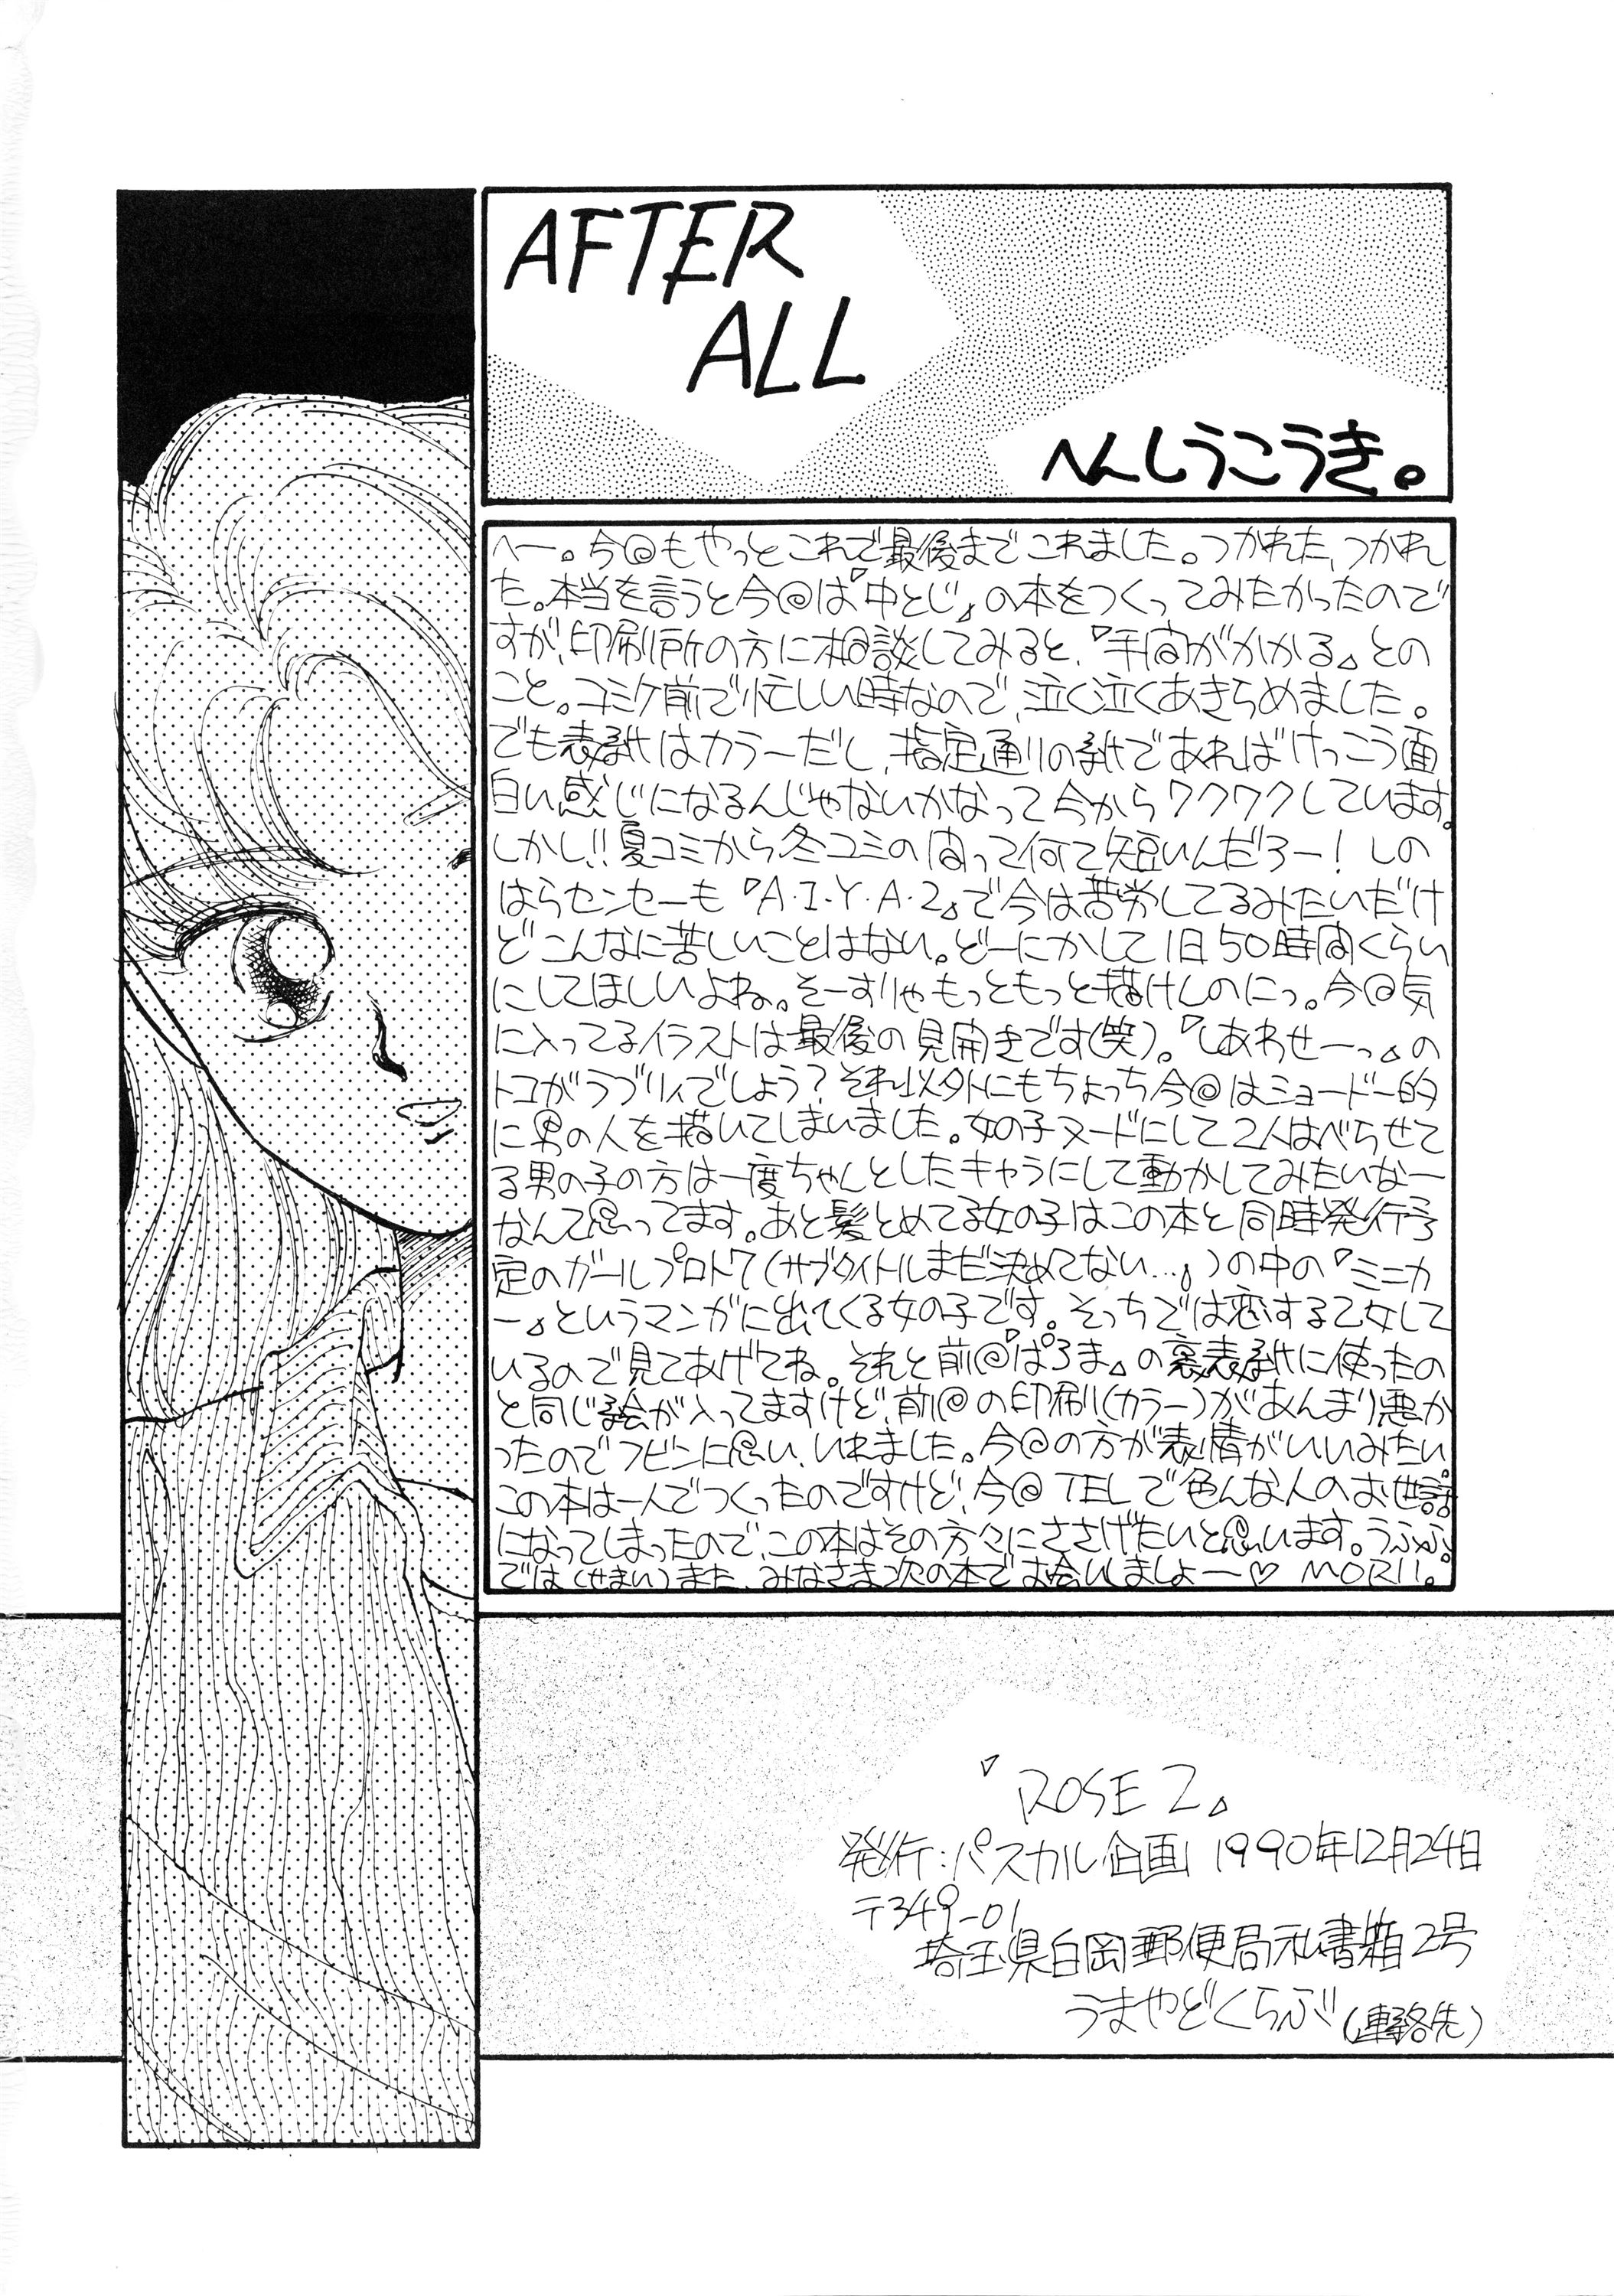 AFTER
ALL
へんしうこうき。
へー。今@もやっとこれで最後までこれました。つかれた、つかれ
た。本当を言うと今@は『中とじ』の本をつくってみたかったので
すが、印刷所の方に相談してみると、『手間がかかる』との
こと。コミケ前で忙しい時なので、泣く泣くあきらめました。
でも表紙はカラーだし、指定通りの紙であればけっこう面
白い感じになるんじゃないかなって今からワクワクしています。
しかし!!夏コミから冬コミの間って何て短いんだろー!しの
はらセンセーも『A・I・Y・A・2』で今は苦労してるみたいだけ
どこんなに苦しいことはない。どーにかして1日50時間くらい
にしてほしいよね。そーすりゃもっともっと描けんのにっ。今@気
に入ってるイラストは最後の見開きです(笑)。『しあわせーっ』の
トコがラブリィでしょう?それ以外にもちょっち今@はショードー的
に男の人を描いてしまいました。女の子ヌードにして2人はべらせて
る男の子の方は一度ちゃんとしたキャラにして動かしてみたいなー
なんて思ってます。あと髪とめてる女の子はこの本と同時発行予
定のガールプロト7(サブタイトルまだ決めてない…』)の中の『ミニカ
ー』というマンガに出てくる女の子です。そっちでは恋する乙女して
いるので見てあげてね。それと前@『ぱろま』の裏表紙に使ったの
と同じ絵が入ってますけど、前@の印刷(カラー)があんまり悪か
ったのでフビンに思い、いれました。今@の方が表情がいいみたい。
この本は一人でつくったのですけど、今@TELで色んな人のお世話
になってしまったので、この本はその方々にささげたいと思います。うふふ。
では(せまい)また、みなさま次の本でお会いしましょー♡ MORII。
『ROSE 2』
発行:パスカル企画 1990年12月24日
〒349-01
埼玉県白岡郵便局私書箱2号
うまやどくらぶ(連絡先)